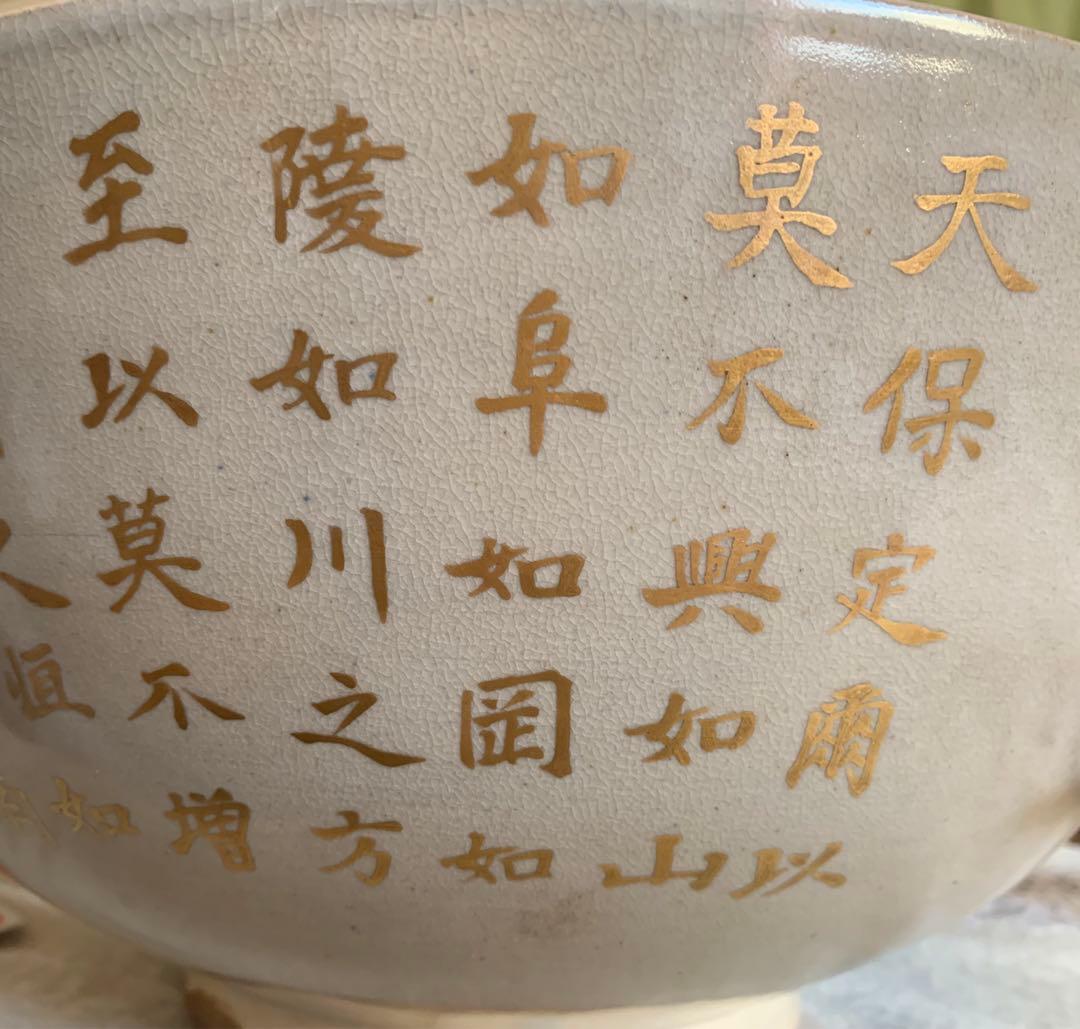 天保定爾以
莫不興如山
如阜如岡如
陵如川之方
至以莫不增
恒如